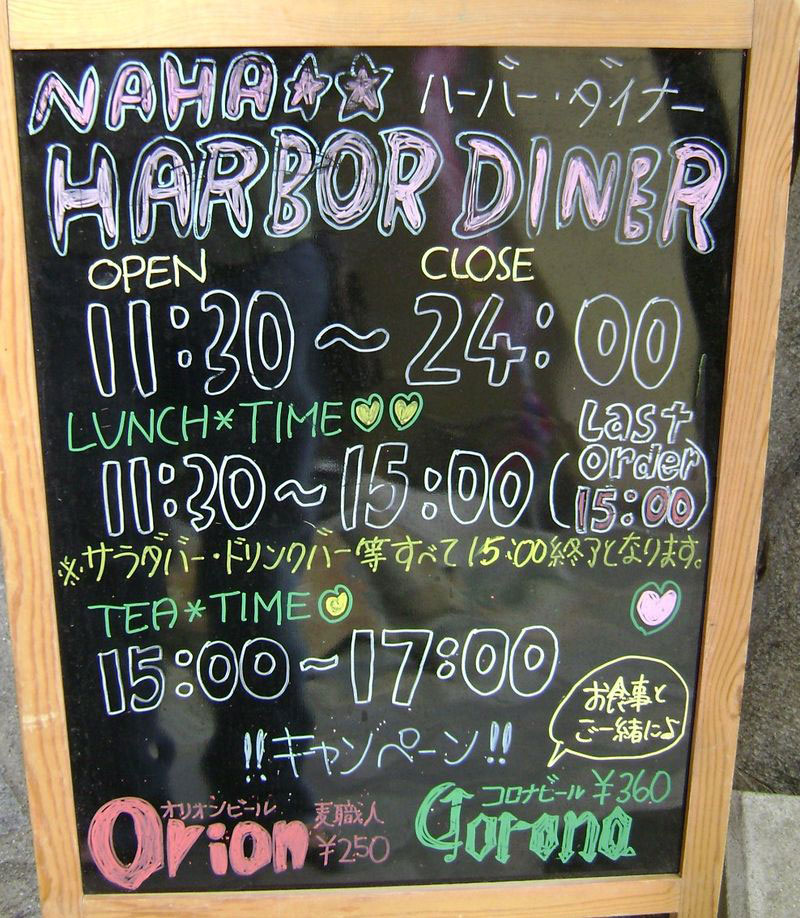 NAHA☆☆ ハーバー・ダイナー
HARBOR DINER
OPEN CLOSE
11:30～24:00
LUNCH*TIME♡♡
11:30～15:00 (Last order 15:00)
※サラダバー・ドリンクバー等すべて15:00終了となります。
TEA*TIME♡
15:00～17:00
お食事と
ご一緒に♪
!!キャンペーン!!
オリオンビール 麦職人
Orion ¥250
コロナビール ¥360
Corona